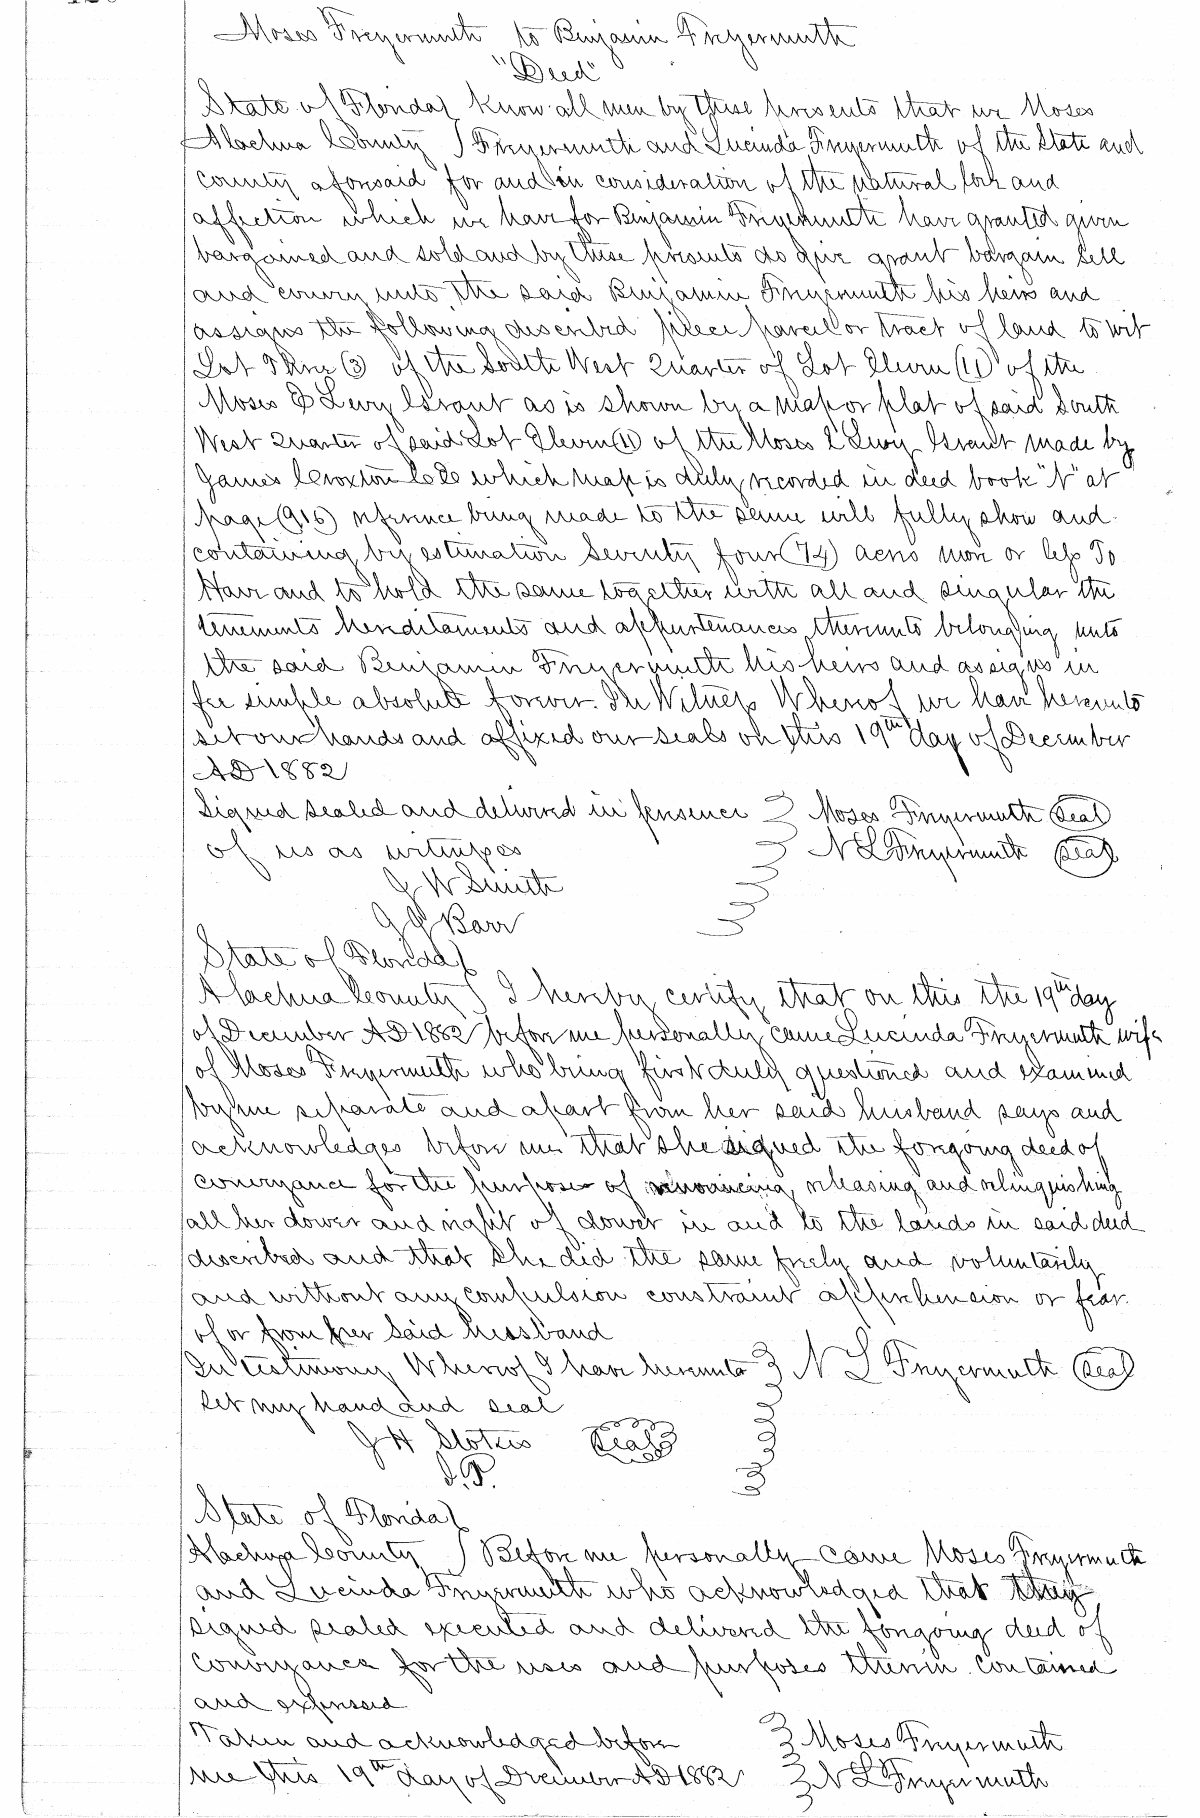 Moses Freyermuth to Benjamin Freyermuth
"Deed"
State of Florida } Know all men by these presents that we Moses
Alachua County } Freyermuth and Lucinda Freyermuth of the State and
County aforesaid for and in consideration of the natural love and
affection which we have for Benjamin Freyermuth have granted given
bargained and sold and by these presents do give grant bargain sell
and convey unto the said Benjamin Freyermuth his heirs and
assigns the following described piece parcel or tract of land to wit
Lot Three (3) of the South West Quarter of Lot Eleven (11) of the
Moses E Levy Grant as is shown by a map or plat of said South
West Quarter of said Lot Eleven (11) of the Moses E Levy Grant made by
James Croxton C.E. which map is duly recorded in deed book "N" at
page (916) reference being made to the same will fully show and
containing by estimation Seventy four (74) acres more or less To
Have and to hold the same together with all and singular the
tenements hereditaments and appurtenances thereunto belonging unto
the said Benjamin Freyermuth his heirs and assigns in
fee simple absolute forever. In Witness Whereof we have hereunto
set our hands and affixed our seals on this 19th day of December
AD 1882
Signed sealed and delivered in presence } Moses Freyermuth Seal
of us as witnesses } N L Freyermuth Seal
J W Smith
J J Barr
State of Florida }
Alachua County } I hereby certify that on this the 19th day
of December AD 1882 before me personally came Lucinda Freyermuth wife
of Moses Freyermuth who being first duly questioned and examined
by me separate and apart from her said husband says and
acknowledges before me that she signed the foregoing deed of
conveyance for the purpose of renouncing, releasing and relinquishing
all her dower and right of dower in and to the lands in said deed
described and that she did the same freely and voluntarily
and without any compulsion constraint apprehension or fear
of or from her said husband
In testimony Whereof I have hereunto } N L Freyermuth Seal
set my hand and seal
J H Stokes Seal
J.P.
State of Florida }
Alachua County } Before me personally came Moses Freyermuth
and Lucinda Freyermuth who acknowledged that they
signed sealed executed and delivered the foregoing deed of
conveyance for the uses and purposes therein contained
and expressed
Taken and acknowledged before } Moses Freyermuth
me this 19th day of December AD 1882 } N L Freyermuth